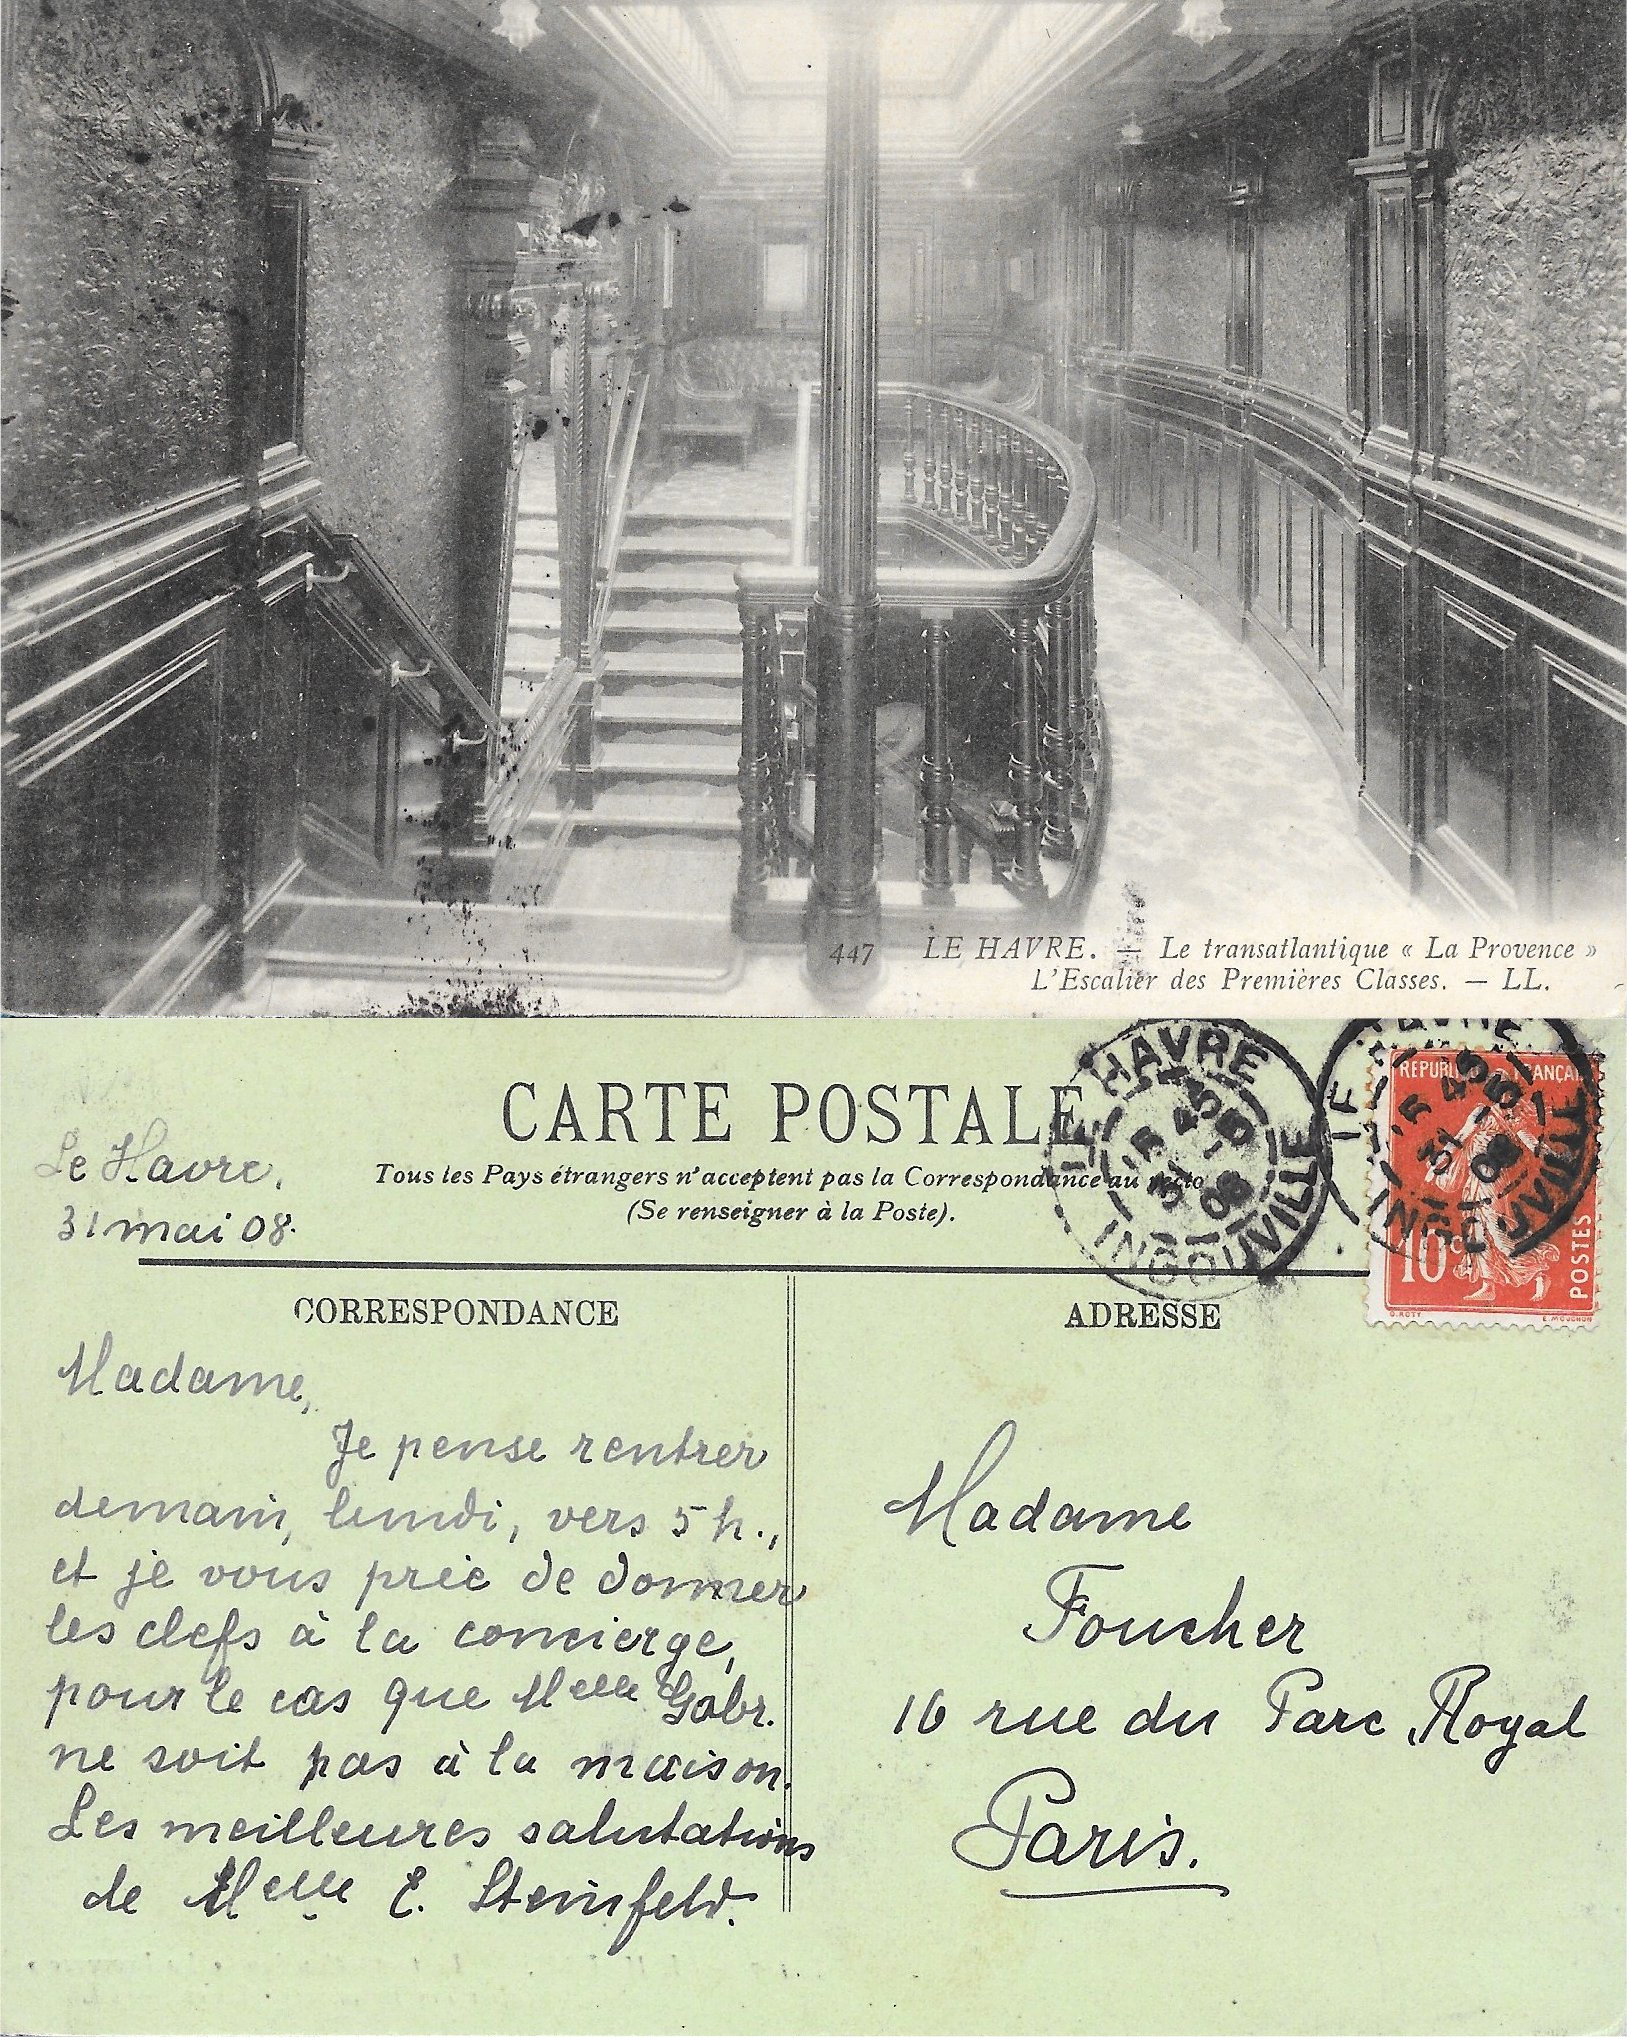 447 LE HAVRE. — Le transatlantique « La Provence »
L'Escalier des Premières Classes. — LL.
CARTE POSTALE
Tous les Pays étrangers n'acceptent pas la Correspondance au recto
(Se renseigner à la Poste).
Le Havre,
31 mai 08.
LE HAVRE
45
31 -5
08
INGOUVILLE
LE HAVRE
45
31 -5
08
INGOUVILLE
REPUBLIQUE FRANÇAISE
10c
POSTES
O. ROTY
E. MOUCHON
CORRESPONDANCE
ADRESSE
Madame,
Je pense rentrer
demain, lundi, vers 5 h.,
et je vous prie de donner
les clefs à la concierge,
pour le cas que Melle Gabr.
ne soit pas à la maison.
Les meilleures salutations
de Melle E. Steinfeld.
Madame
Foucher
16 rue du Parc Royal
Paris.